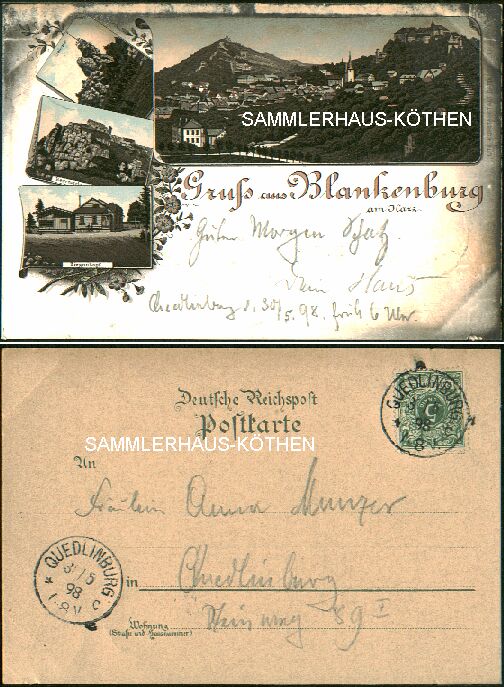 SAMMLERHAUS-KÖTHEN
Gruss aus Blankenburg
am Harz.
Ziegenkopf
Guten Morgen Schatz
Dein Hans
Quedlinburg d. 30/5. 98. früh 6 Uhr.
Deutsche Reichspost
Postkarte
SAMMLERHAUS-KÖTHEN
An
Fräulein Anna Munzer
in Quedlinburg
Steinweg 89 I
Wohnung
(Straße und Hausnummer)
QUEDLINBURG
98
QUEDLINBURG
31/5
98